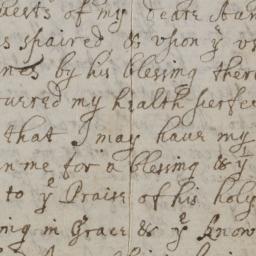 uests of my deare
s spaired & vpon yͤ
by his blessing ther
uered my health perfe
that I may haue my
n me for a blessing & yͭ
to yͤ Praise of his holy
ing in Grace & yͤ know